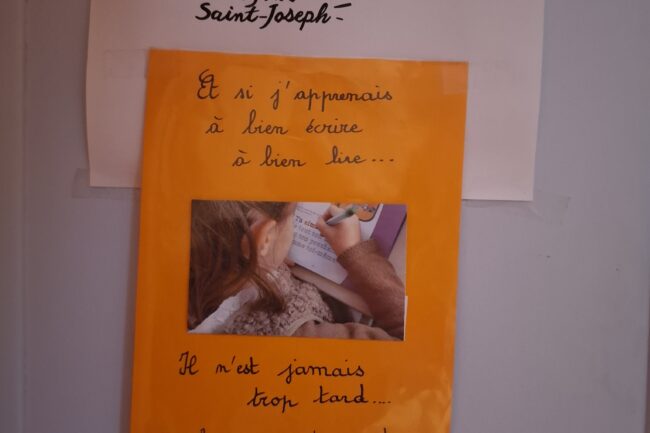 Saint-Joseph-
Et si j'apprenais
à bien écrire
à bien lire...
Il n'est jamais
trop tard....